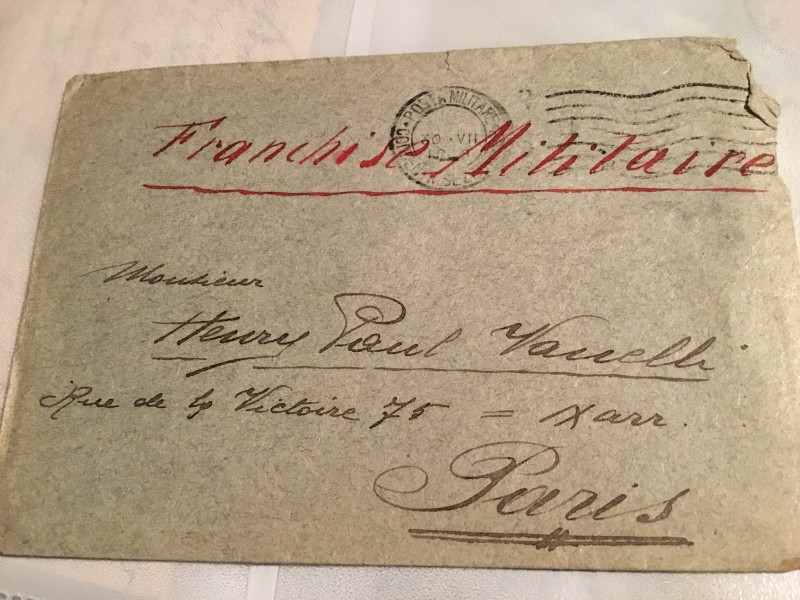 POSTA MILITAR
30 · VII
Franchise Militaire
Monsieur
Henry Paul Vanelli
Rue de la Victoire 75 = X arr.
Paris